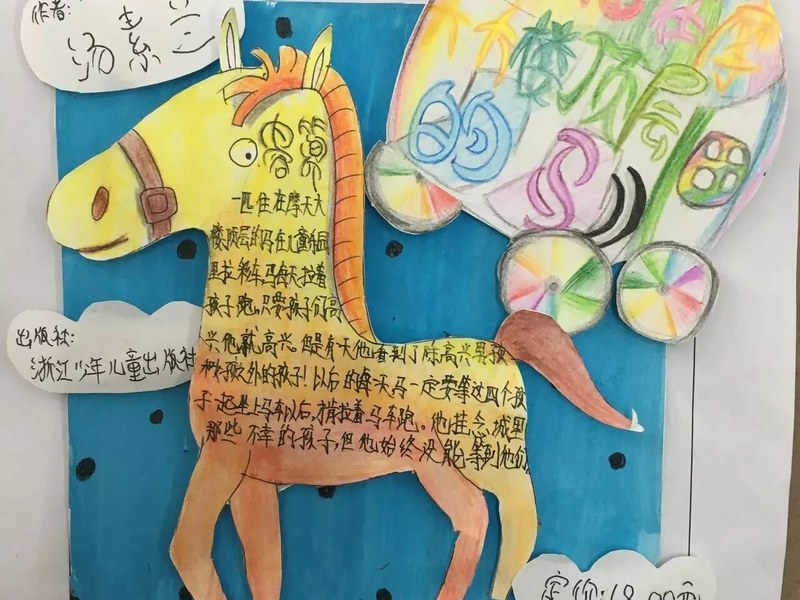 作者:
汤素兰
大楼顶层
的马
内容简介
一匹住在摩天大
楼顶层的马在儿童乐园
里拉彩车,马每天拉着
孩子跑,只要孩子们高
兴他就高兴。但是有天他看到了除高兴男孩
和女孩之外的孩子!以后的每天马一定要等这四个孩
子一起坐上马车以后,才肯拉着马车跑。他挂念城里
那些不幸的孩子,但他始终没能等到他们
出版社:
浙江少年儿童出版社
定价:18.00元